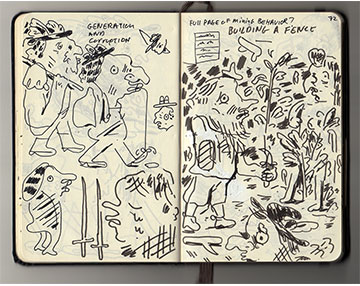 GENERATION
AND
CORRUPTION
FULL PAGE OF MINING BEHAVIOR?
BUILDING A FENCE
72